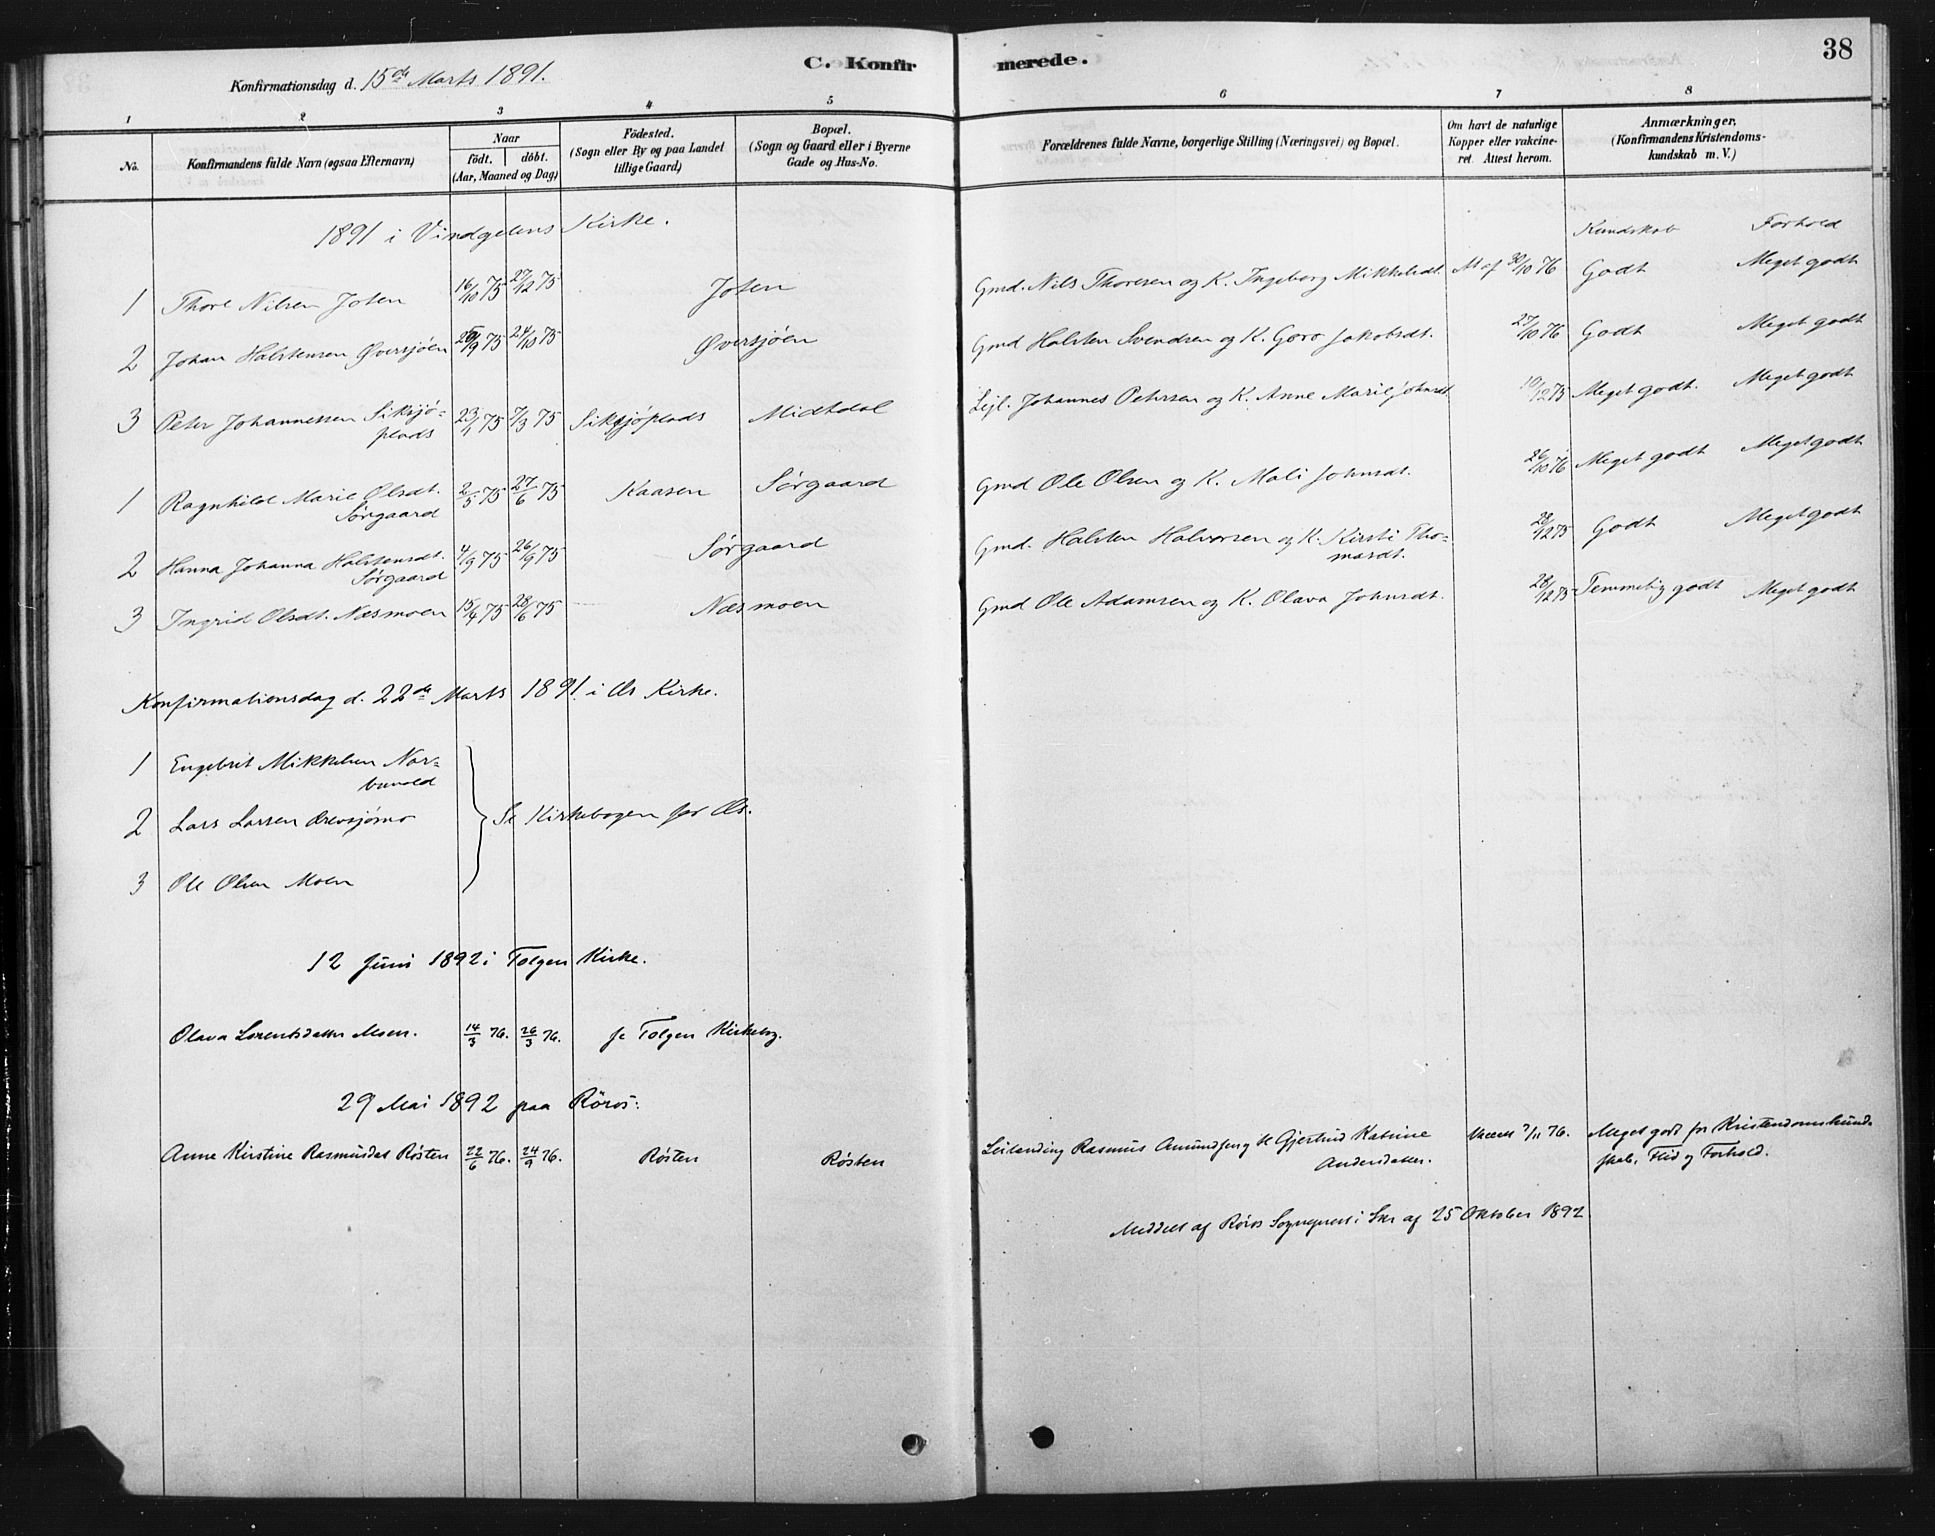 38
C. Konfirmerede.
Konfirmationsdag d. 15de Marts 1891.
1 2 3 4 5 6 7 8
No. Konfirmandens fulde Navn (ogsaa Efternavn) Naar födt. döbt. (Aar, Maaned og Dag) Födested. (Sogn eller By og paa Landet tillige Gaard) Bopæl. (Sogn og Gaard eller i Byerne Gade og Hus-No. Forældrenes fulde Navne, borgerlige Stilling (Næringsvei) og Bopæl. Om havt de naturlige Kopper eller vakcineret. Attest herom. Anmærkninger. (Konfirmandens Kristendomskundskab m. V.)
1891 i Vindgelens Kirke. Kundskab Forhold
1 Thore Nilsen Joten 16/10 75 27/12 75 Joten Gmd. Nils Thoresen og K. Ingeborg Mikkelsdt. At af 30/10 76 Godt Meget godt
2 Johan Halstensen Øversjøen 29/9 75 24/10 75 Øversjøen Gmd Halsten Svendsen og K. Goro Jakobsdt. 27/10 76 Godt Meget godt
3 Peter Johannessen Siksjø-
plads 23/1 75 7/3 75 Siksjøplads Midtdal Lejl. Johannes Petersen og K. Anne Marie Johnsdt 10/12 75 Meget godt. Meget godt
1 Ragnhild Marie Olsdt.
Sørgaard 2/5 75 27/6 75 Kaasen Sørgaard Gmd Ole Olsen og K. Mali Johnsdt. 26/10 76 Meget godt Meget godt
2 Hanna Johanna Halstensdt.
Sørgaard 4/9 75 26/9 75 Sørgaard Gmd. Halsten Halvorsen og K. Kirsti Tho-
masdt. 28/12 75 Godt Meget godt
3 Ingrid Olsdt. Næsmoen 15/4 75 28/6 75 Næsmoen Gmd Ole Adamsen og K. Olava Johnsdt. 28/12 75 Temmelig godt Meget godt
Konfirmationsdag d. 22de Marts 1891 i Os Kirke.
1 Engebret Mikkelsen Nor-
bunold
2 Lars Larsen Øversjømo Se Kirkebogen for Os.
3 Ole Olsen Moen
12 Juni 1892 i Tolgen Kirke.
Olava Lorentsdatter Moen. 14/3 76. 26/3 76. se Tolgen Kirkebog.
29 Mai 1892 paa Röros:
Anne Kirstine Rasmusdat Røsten 22/6 76. 24/9 76. Røsten Røsten Leilænding Rasmus Amundsen og K Gjertrud Katrine
Andersdatter. Vaccet 7/11 76. Meget god for Kristendomskund-
skab, Flid og Forhold.
Meddelt af Røros Sognepræst i Skr af 25 Oktober 1892